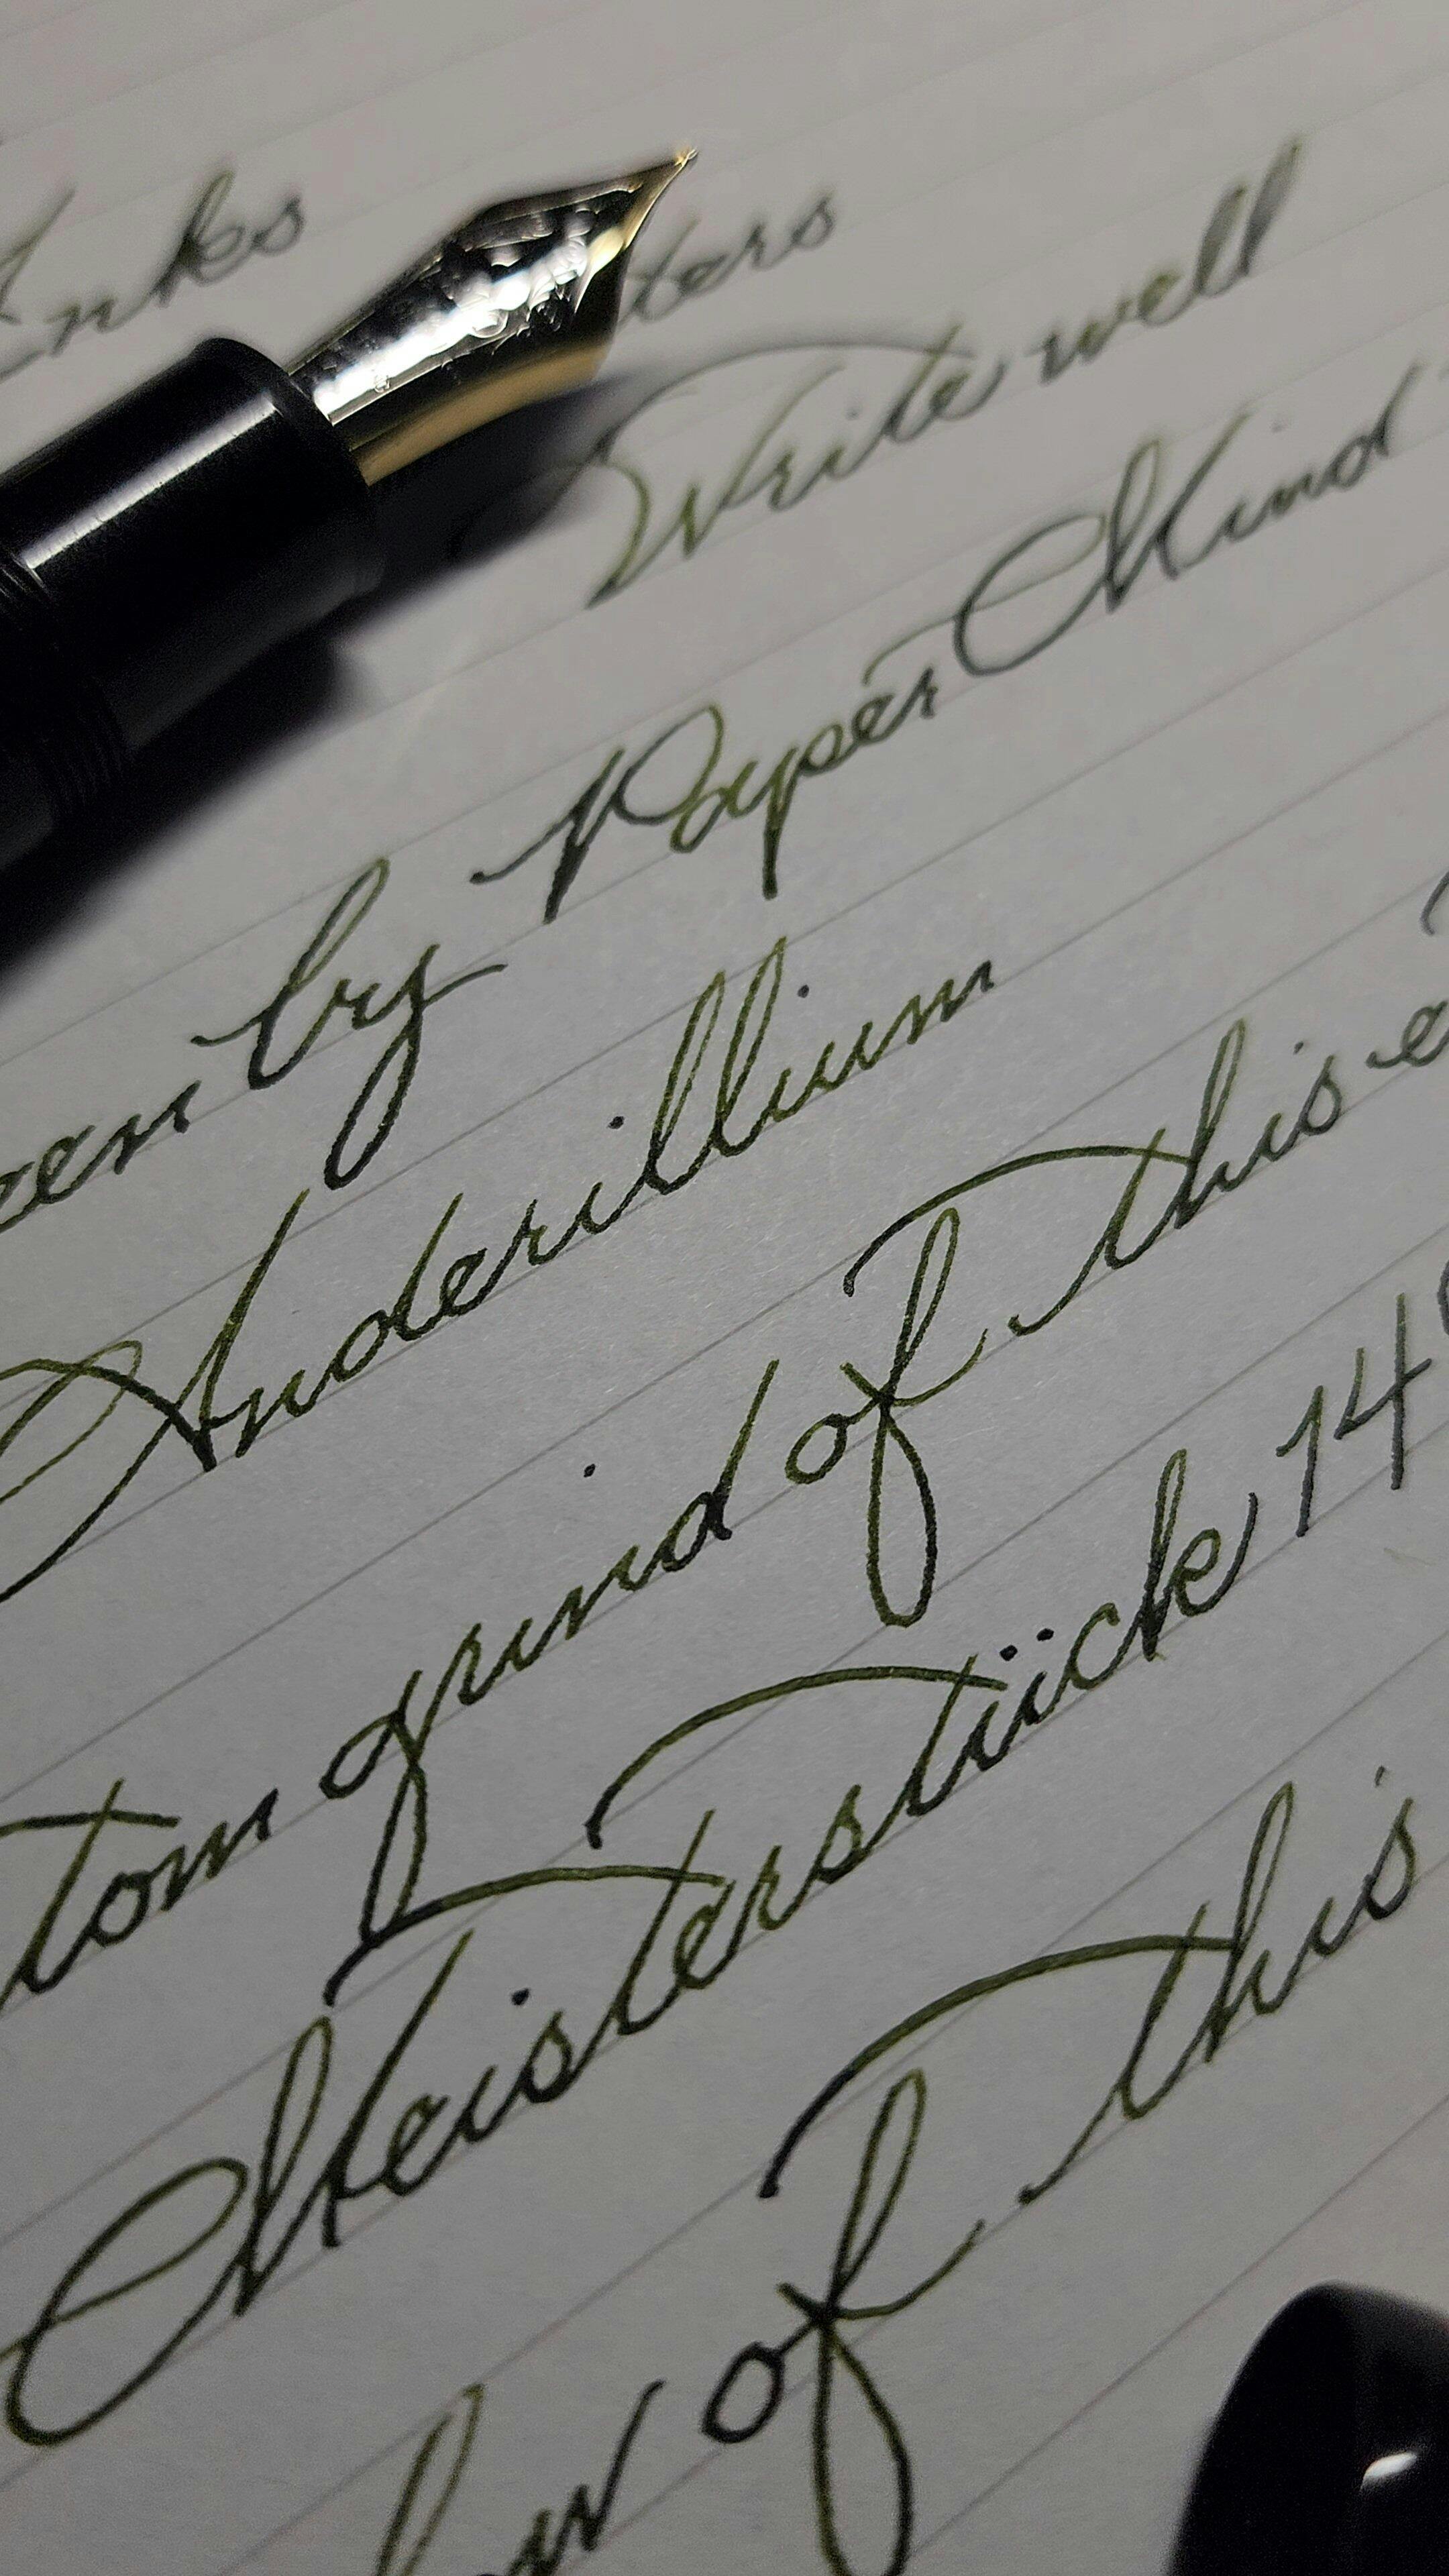 Inks
ters
Write well
een by Paper Mind
Anderillium
tom grind of this
Meisterstück 14
of this